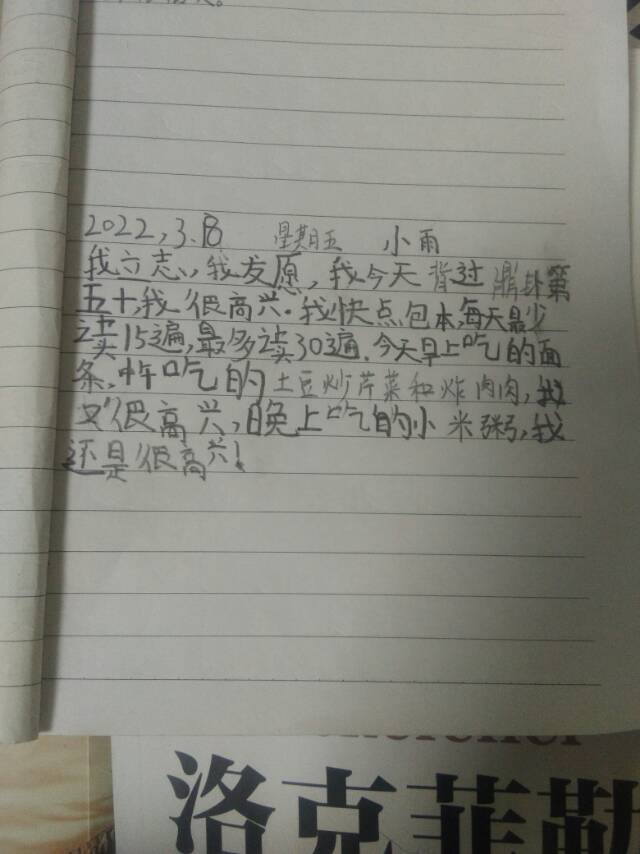 2022,3.18 星期五 小雨
我立志,我发愿,我今天背过鼎卦第
五十,我很高兴.我快点包本,每天最少
读15遍,最多读30遍.今天早上吃的面
条,中午吃的土豆炒芹菜和炸肉肉,我
又很高兴,晚上吃的小米粥,我
还是很高兴!
洛克菲勒